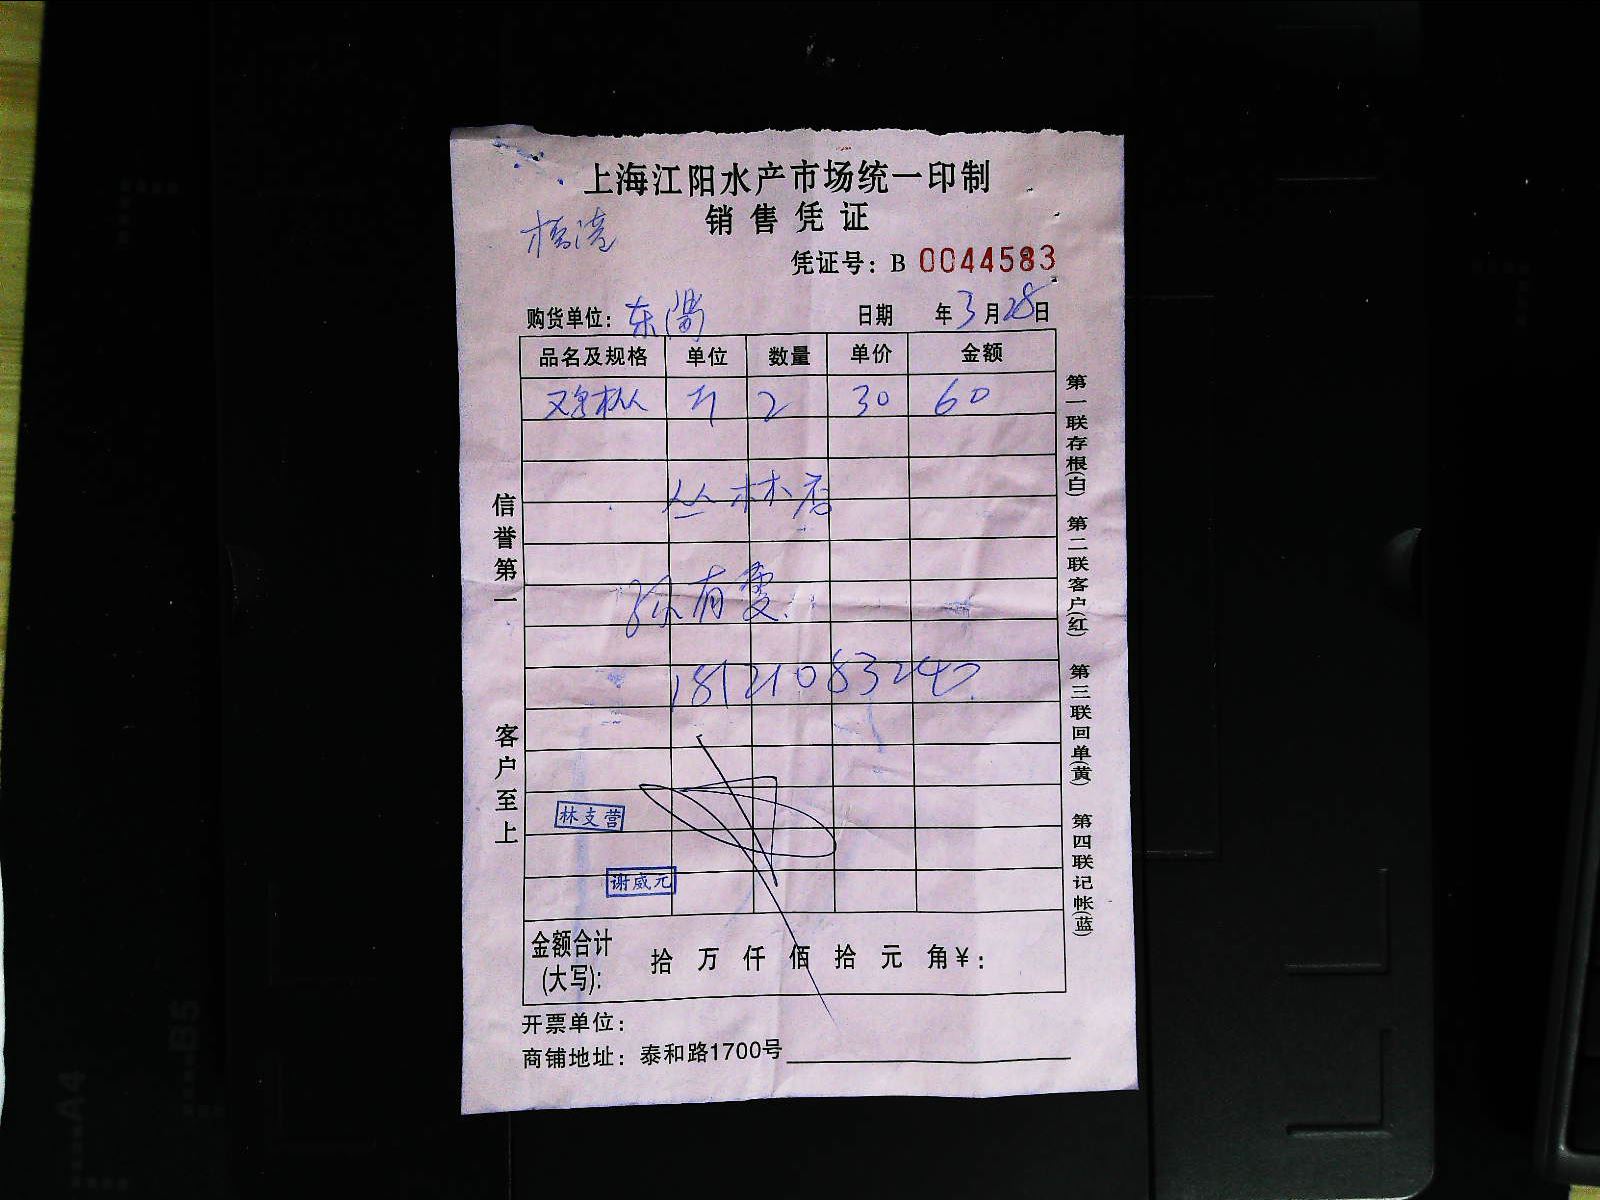 上海江阳水产市场统一印制
销售凭证
凭证号：B 0044583
购货单位： 日期 年3月28日
品名及规格 单位 数量 单价 金额
鸡枞 斤 2 30 60
丛林店
有
18121083240
林支营
谢威元
金额合计 拾 万 仟 佰 拾 元 角￥：
(大写)：
开票单位：
商铺地址：泰和路1700号
信誉第一 客户至上
第一联存根(白) 第二联客户(红) 第三联回单(黄) 第四联记帐(蓝)